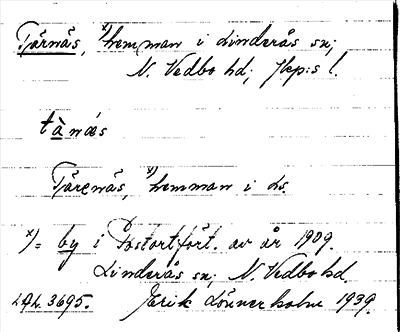 Tärnäs, x) hemman i Linderås sn;
N. Vedbo hd; Jkp:s l.
tànæs
Tärenäs, x) hemman i Ls.
x) = by i Postortfört. av år 1909.
Linderås sn, N. Vedbo hd.
LAL. 3695. Erik Lönnerholm 1939.